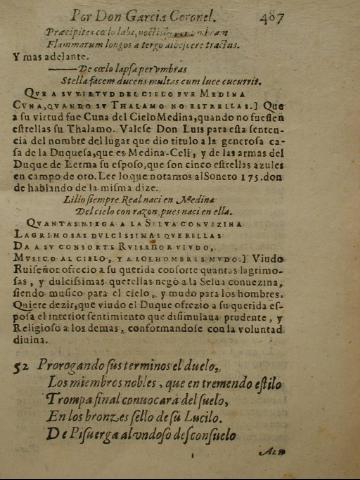 Por Don Garcia Coronel. 487
Præcipites cœlo labi, noctisque per vmbram
Flammarum longos a tergo albescere tractus.
Y mas adelante.
De cœlo lapsa per vmbras
Stella facem ducens multas cum luce cucurrit.
QVE A SV VIRTVD DEL CIELO FVE MEDINA
CVNA, QVANDO SV THALAMO NO ESTRELLAS.] Que
a su virtud fue Cuna del Cielo Medina, quando no fuessen
estrellas su Thalamo. Valese Don Luis para esta senten-
cia del nombre del lugar que dio titulo a la generosa ca-
sa de la Duquesa, que es Medina-Celi, y de las armas del
Duque de Lerma su esposo, que son cinco estrellas azules
en campo de oro. Lee lo que notamos al Soneto 175. don
de hablando de la misma dize.
Lilio siempre Real naci en Medina
Del cielo con razon, pues naci en ella.
QVANTAS NIEGA A LA SELVA CONVEZINA
LAGRIMOSAS DVLCISSIMAS QVERELLAS
DA A SV CONSORTE RVISEñOR VIVDO,
MVSICO AL CIELO, Y A LOS HOMBRES MVDO.] Viudo
Ruiseñor ofrecio a su querida consorte quantas lagrimo-
sas, y dulcissimas querellas negò a la Selva conuezina,
siendo musico para el cielo, y mudo para los hombres.
Quiere dezir, que viudo el Duque ofrecio a su querida es-
posa el interior sentimiento que disimulaua prudente, y
Religioso a los demas, conformandose con la voluntad
diuina.
52 Prorogando sus terminos el duelo,
Los miembros nobles, que en tremendo estilo
Trompa final conuocarà del suelo,
En los bronzes sello de su Lucilo.
De Pisuerga al vndoso desconsuelo